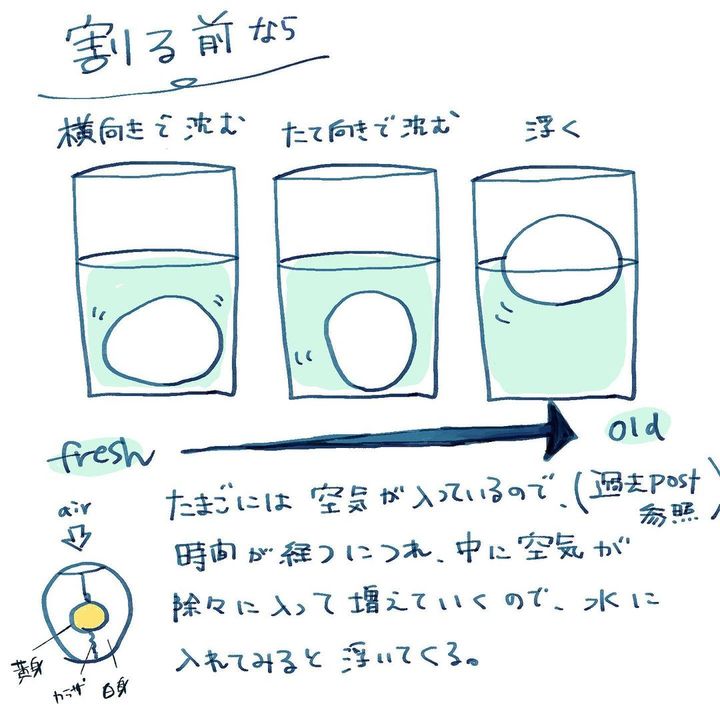 割る前なら
横向きで沈む
たて向きで沈む
浮く
fresh
old
air
たまごには空気が入っているので、(過去post参照)
時間が経つにつれ、中に空気が
除々に入って増えていくので、水に
入れてみると浮いてくる。
黄身
カラザ
白身